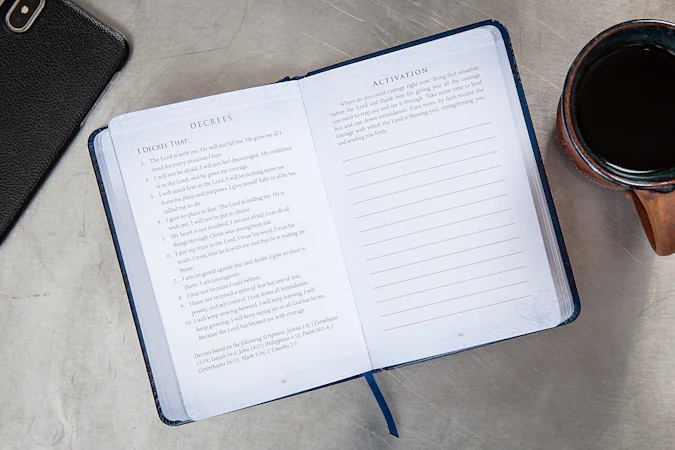 DECREES
I DECREE THAT:
1. The Lord is with me. He will not fail me. He gives me all I
need for every situation I face.
2. I will not be afraid. I will not feel discouraged. My confidence
is in the Lord, and he gives me courage.
3. I will stand firm in the Lord. I will let nothing move me
from his plans and purposes. I give myself fully to all he has
called me to do.
4. I give no place to fear. The Lord is leading me. He is
with me. I will not be put to shame.
5. My heart is not troubled; I am not afraid. I can do all
things through Christ who strengthens me.
6. I put my trust in the Lord. I trust his word. I trust his
truth. I trust that he is with me and that he is making me
brave.
7. I am on guard against fear and doubt. I give no place to
them. I am courageous.
8. I fear not because I only believe.
9. I have not received a spirit of fear but one of love,
power, and self-control. I cast down all intimidation.
10. I will keep moving forward. I will keep learning. I will
keep growing. I will keep saying yes to all God has for me,
because the Lord has blessed me with courage.
Decrees based on the following Scriptures: Joshua 1:9; 1 Corinthians
15:58; Isaiah 54:4; John 14:27; Philippians 4:13; Psalm 56:3-4; 1
Corinthians 16:13; Mark 5:36; 2 Timothy 1:7
ACTIVATION
Where do you need courage right now? Bring that situation
before the Lord and thank him for giving you all the courage
you need to step out and see it through. Take some time to bind
fear and cast down intimidation. Even more, by faith receive the
courage with which the Lord is blessing you, strengthening you,
and sending you forth.